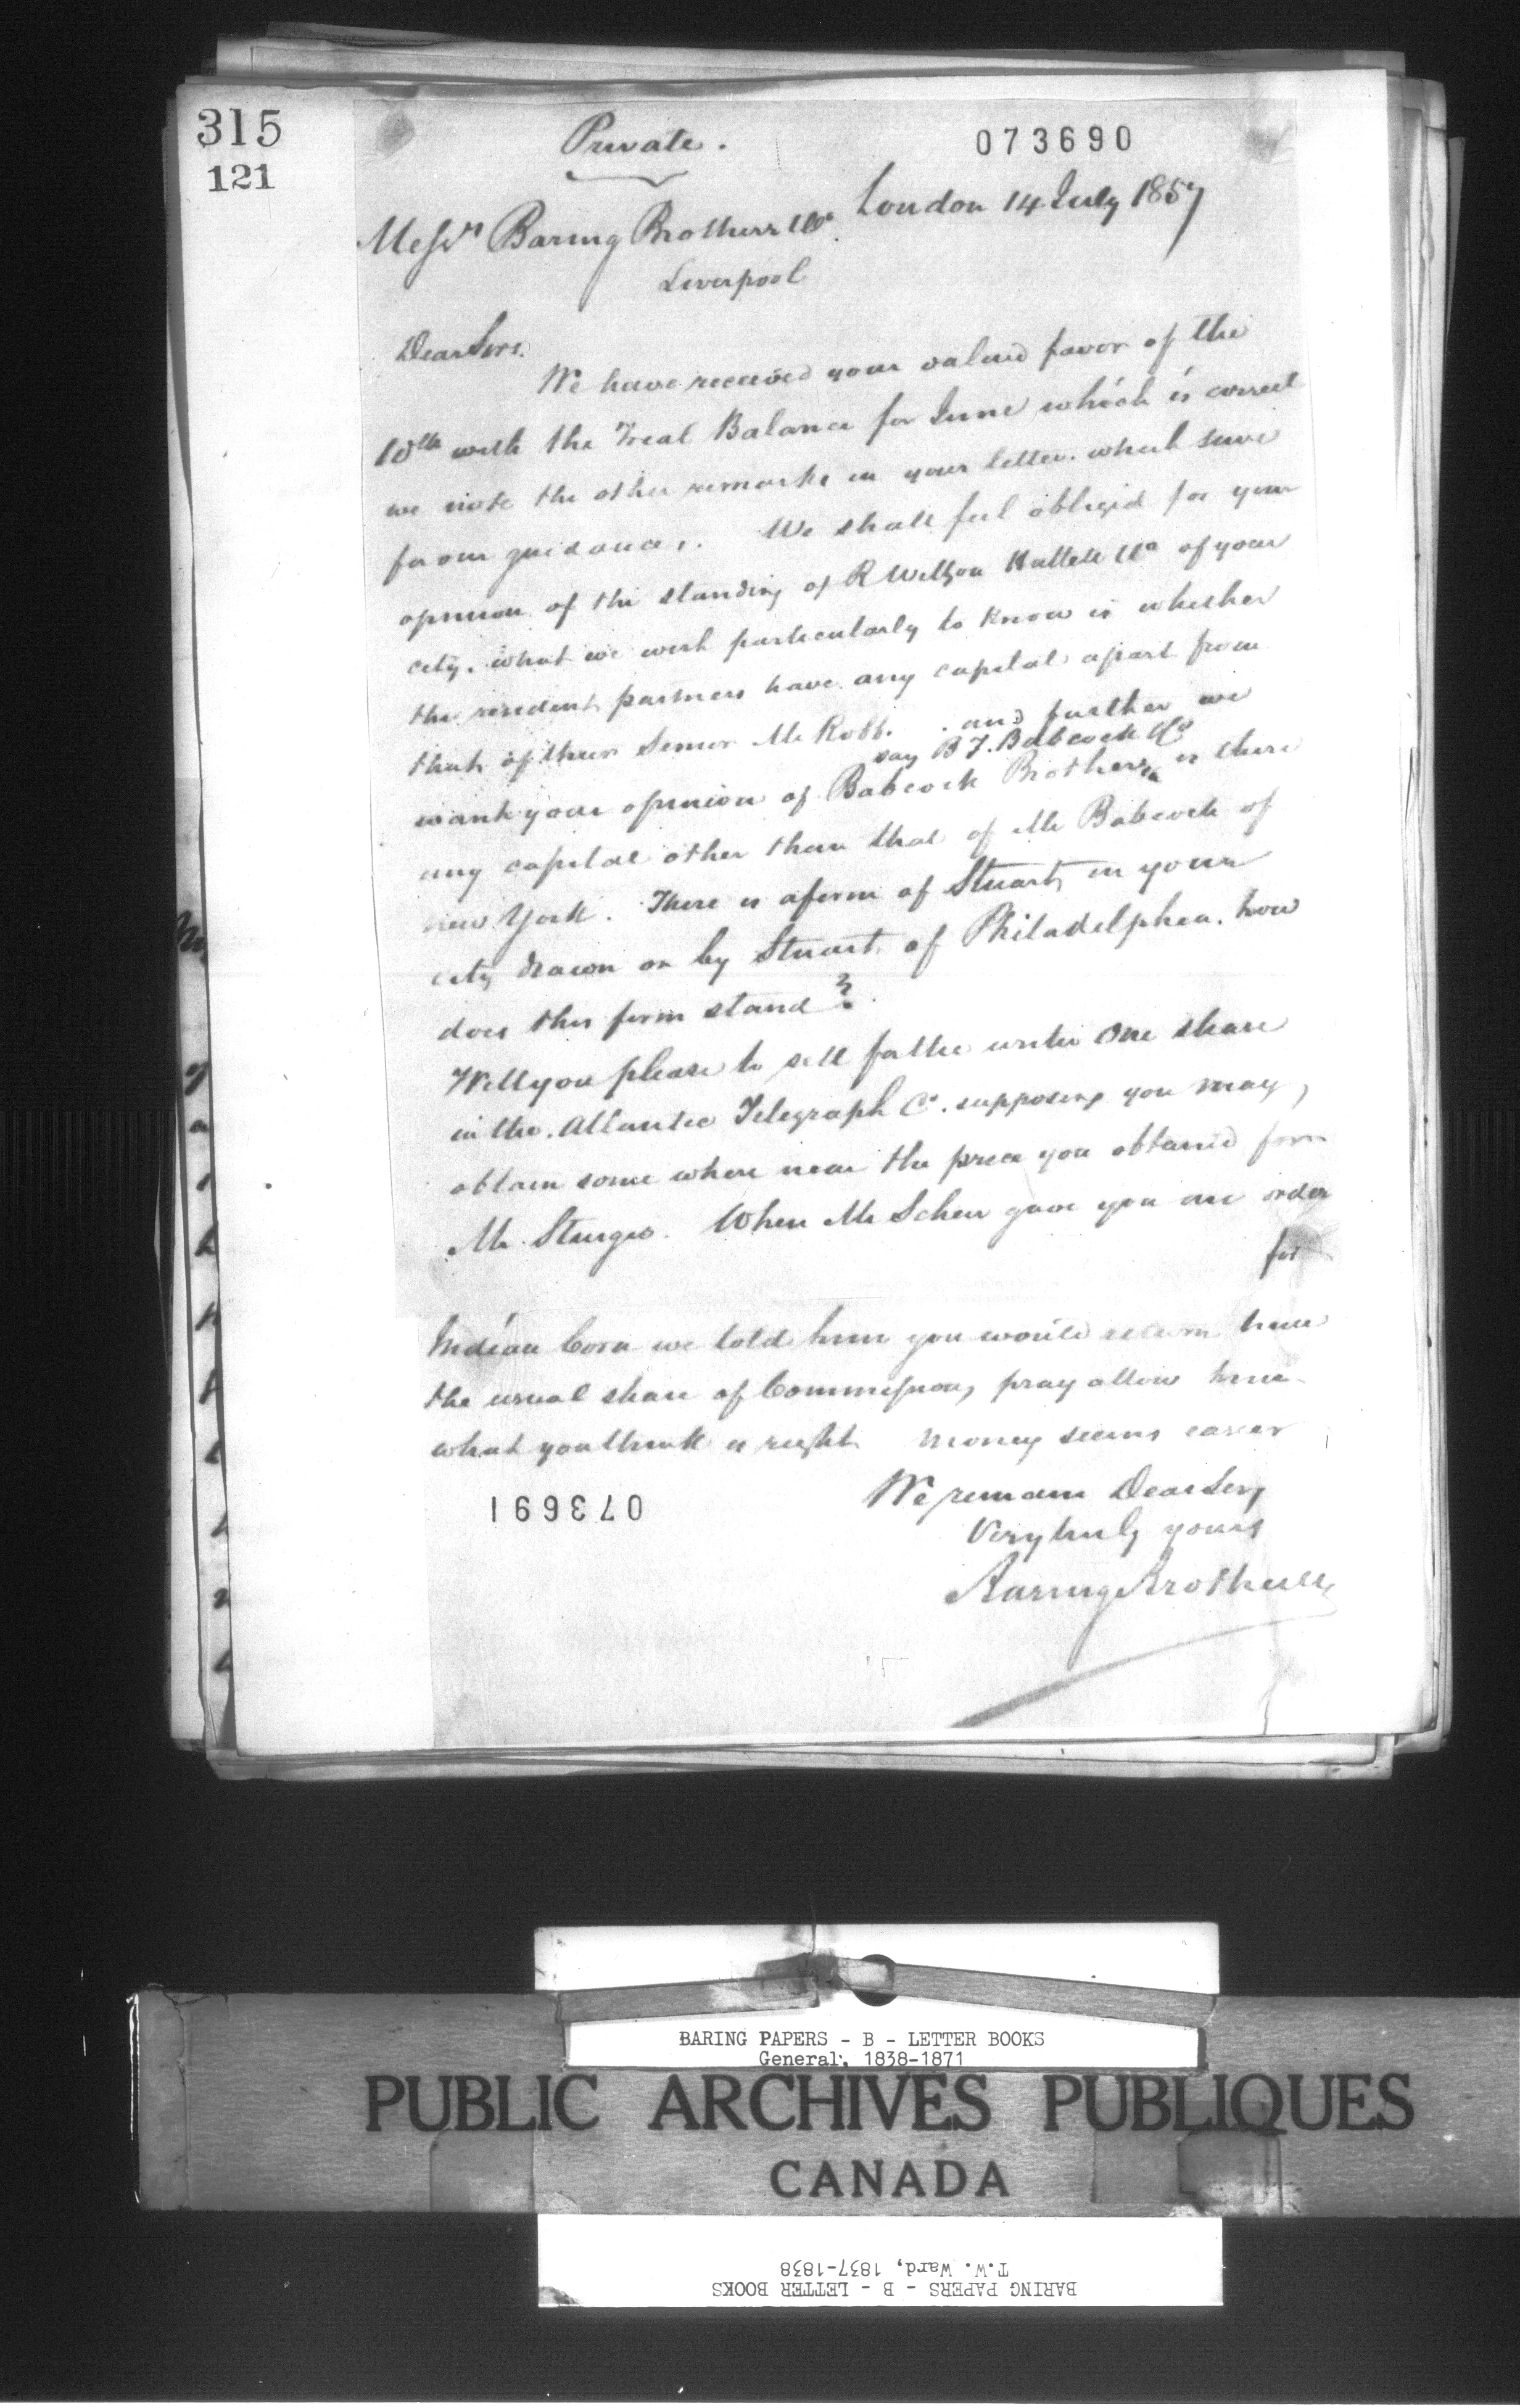 315
121
073690
Private.
London 14 July 1857
Messrs Baring Brothers & Co
Liverpool
Dear Sirs.
We have received your valued favor of the
10th with the Trial Balance for June which is correct
we note the other remarks in your letter. which serve
for our guidance. We shall feel obliged for your
opinion of the standing of R of your
city. what we wish particularly to know is whether
the resident partners have any capital apart from
that of their Senior Mr Robb. and further we
say B F. Babcock & Co
want your opinion of Babcock Brothers is there
any capital other than that of Mr Babcock of
New York. There is a firm of Stuart, in your
city drawn on by Stuart of Philadelphia. how
does this firm stand?
Will you please to sell for the writer One share
in the Atlantic Telegraph Co. supposing you may,
obtain some where near the price you obtained from
Mr Sturgis. When Mr gave you an order
for
Indian Corn we told him you would return him
the usual share of Commission, pray allow him
what you think is right. Money seems easier
We remain Dear Sirs,
Very truly yours
Baring Brothers & Co
073691
BARING PAPERS - B - LETTER BOOKS
General, 1838-1871
PUBLIC ARCHIVES PUBLIQUES
CANADA
BARING PAPERS - B - LETTER BOOKS
T.W. Ward, 1837-1838